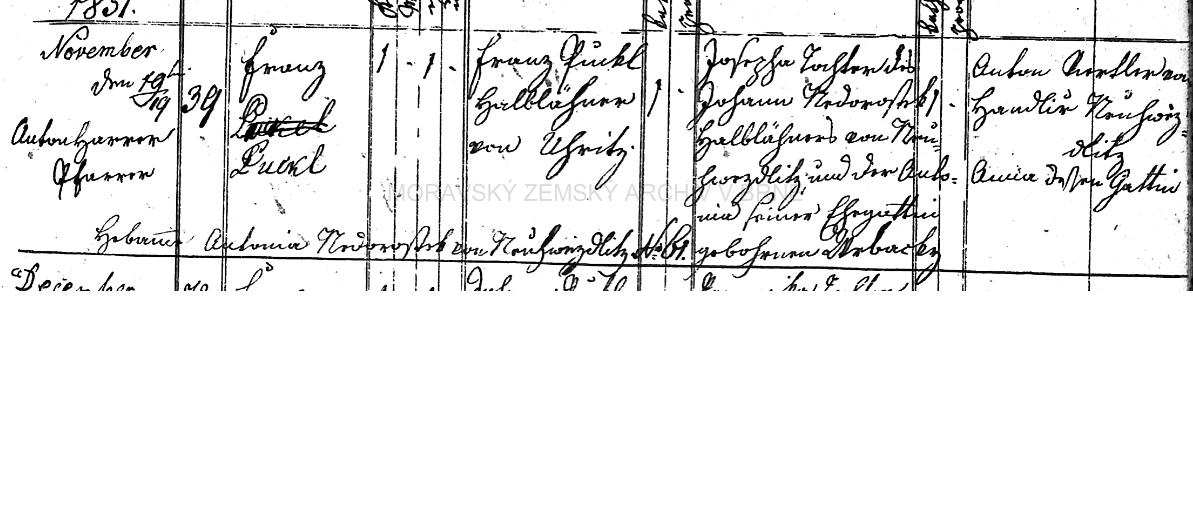 1831.
November
den 19t
19
Anton Harrer
Pfarrer
39
Franz
Puckl
1 . 1 .
Franz Puckl
Halblähner
von Uhritz.
1 .
Josepha Tochter des
Johann Nedorostek
Halblähners von Neu-
hwezdlitz und der Anto-
nia seiner Ehegattin
gebohrnen Urbacky
1 .
Anton
Händler Neuhwez-
dlitz
Anna dessen Gattin
Hebamme Antonia Nedorostek von Neuhwezdlitz No 61.
December
MORAVSKÝ ZEMSKÝ ARCHIV V BRNĚ